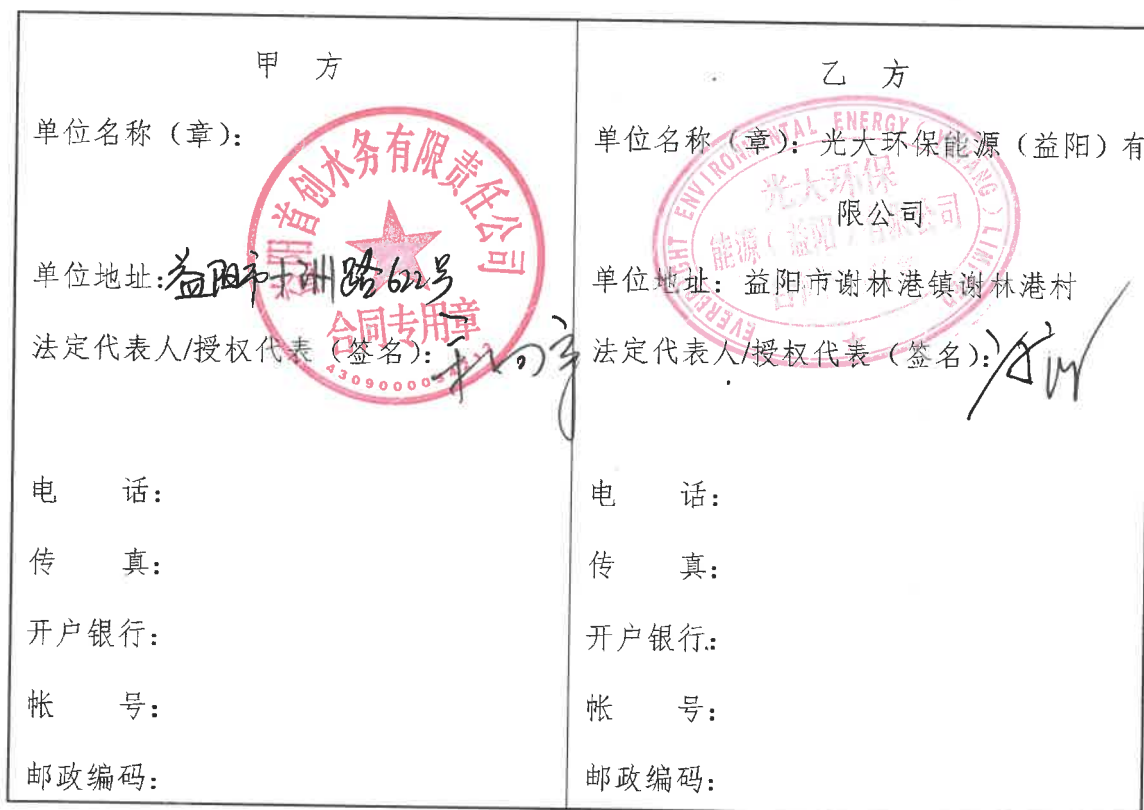 甲 方
单位名称（章）：
益阳首创水务有限责任公司
合同专用章
单位地址：益阳市十洲路622号
法定代表人/授权代表（签名）：
电 话：
传 真：
开户银行：
帐 号：
邮政编码：
乙 方
单位名称（章）：光大环保能源（益阳）有
限公司
EVERBRIGHT ENVIRONMENTAL ENERGY (YIYANG) LIMITED
光大环保
能源（益阳）有限公司
单位地址：益阳市谢林港镇谢林港村
法定代表人/授权代表（签名）：
电 话：
传 真：
开户银行：
帐 号：
邮政编码：